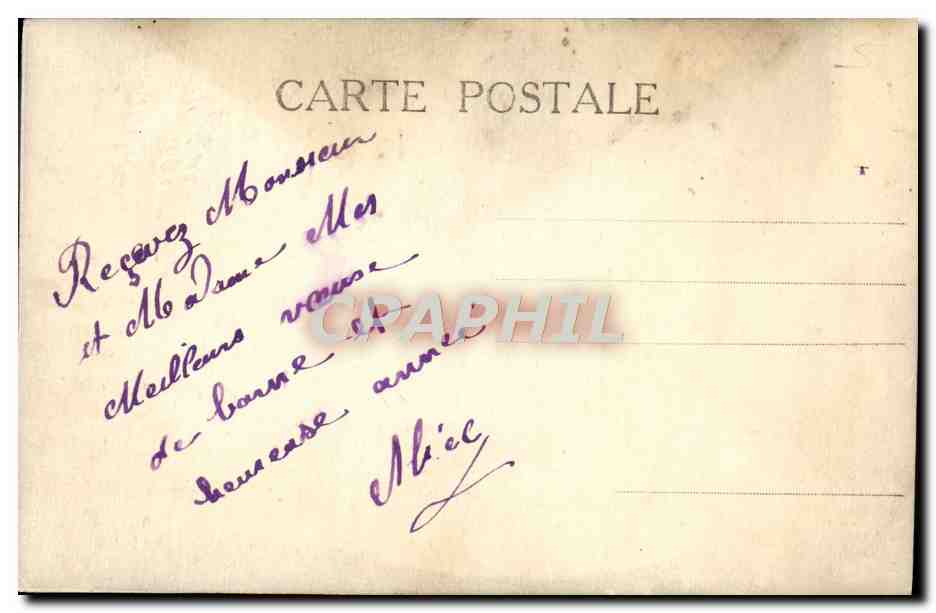 CARTE POSTALE
Reçevez Monsieur
et Madame Mes
Meilleurs
de bonne et
heureuse année
CPAPHIL